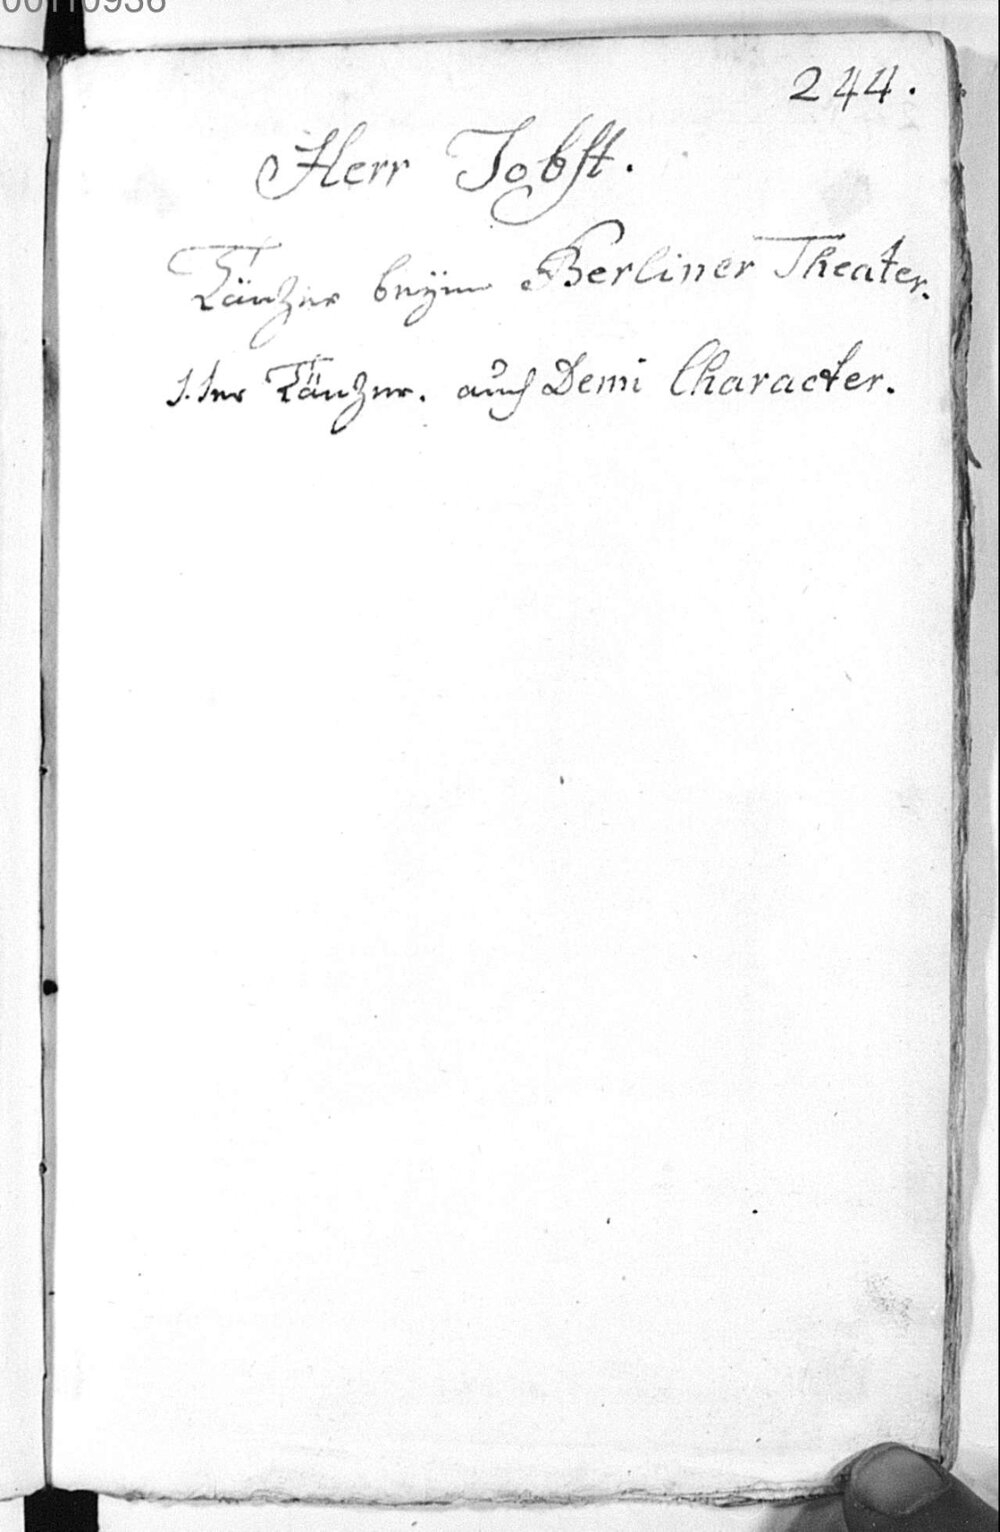 00110936
244.
Herr Jobst.
Tänzer beÿm Berliner Theater.
1.ter Tänzer. auch Demi Character.